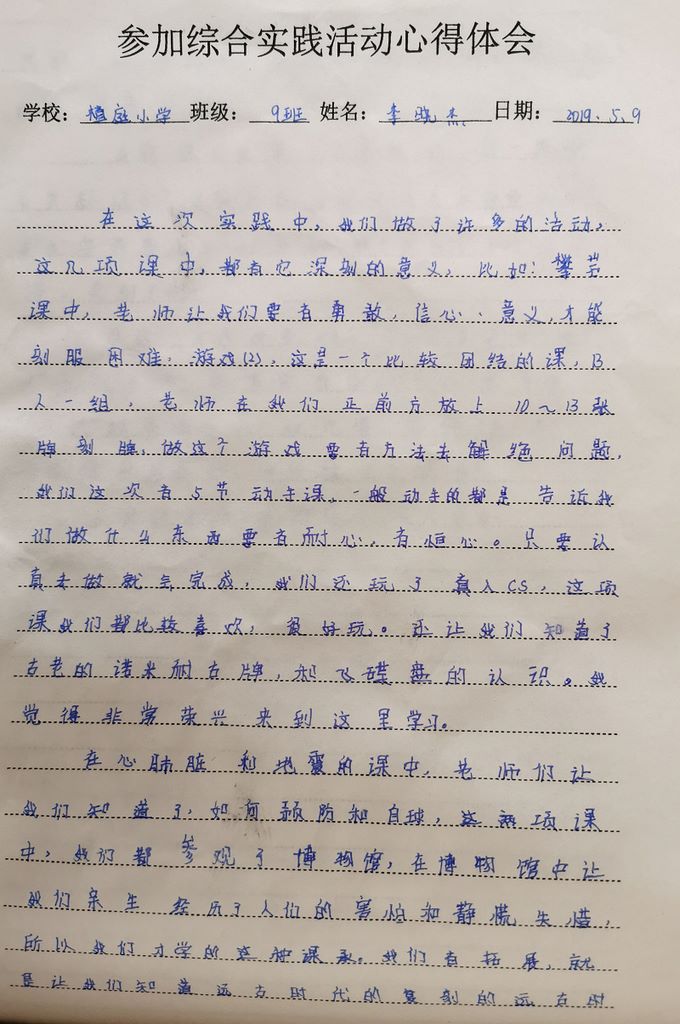 参加综合实践活动心得体会
学校：植庭小学 班级：9班 姓名：李晓杰 日期：2019.5.9
在这次实践中，我们做了许多的活动，
这几项课中，都有它深刻的意义，比如：攀岩
课中，老师让我们要有勇敢，信心、意义，才能
刻服困难，游戏(2)，这是一个比较团结的课，13
人一组，老师在我们正前方放上10~13张
牌刻牌，做这个游戏要有方法去解绝问题，
我们这次有5节动手课，一般动手的都是告诉我
们做什么东西要有耐心，有恒心。只要认
真去做就会完成，我们还玩了真人CS，这项
课我们都比较喜欢，很好玩。还让我们知道了
古老的诺米耐古牌，和飞碟盘的认识。我
觉得非常荣兴来到这里学习。
在心肺脏和地震的课中，老师们让
我们知道了，如何预防和自球，这两项课
中，我们都参观了博物馆，在博物馆中让
我们亲生经历了人们的害怕和静慌失惜，
所以我们才学的这种课承。我们有拓展，就
是让我们知道远古时代的复刻的远古时